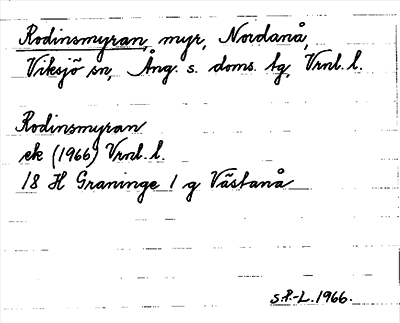 Rodinsmyran, myr, Nordanå,
Viksjö sn, Ång. s. doms. tg, Vrnl. l.
Rodinsmyran
ek (1966) Vrnl. l.
18 H Graninge 1 g Västanå
S.P.-L. 1966.